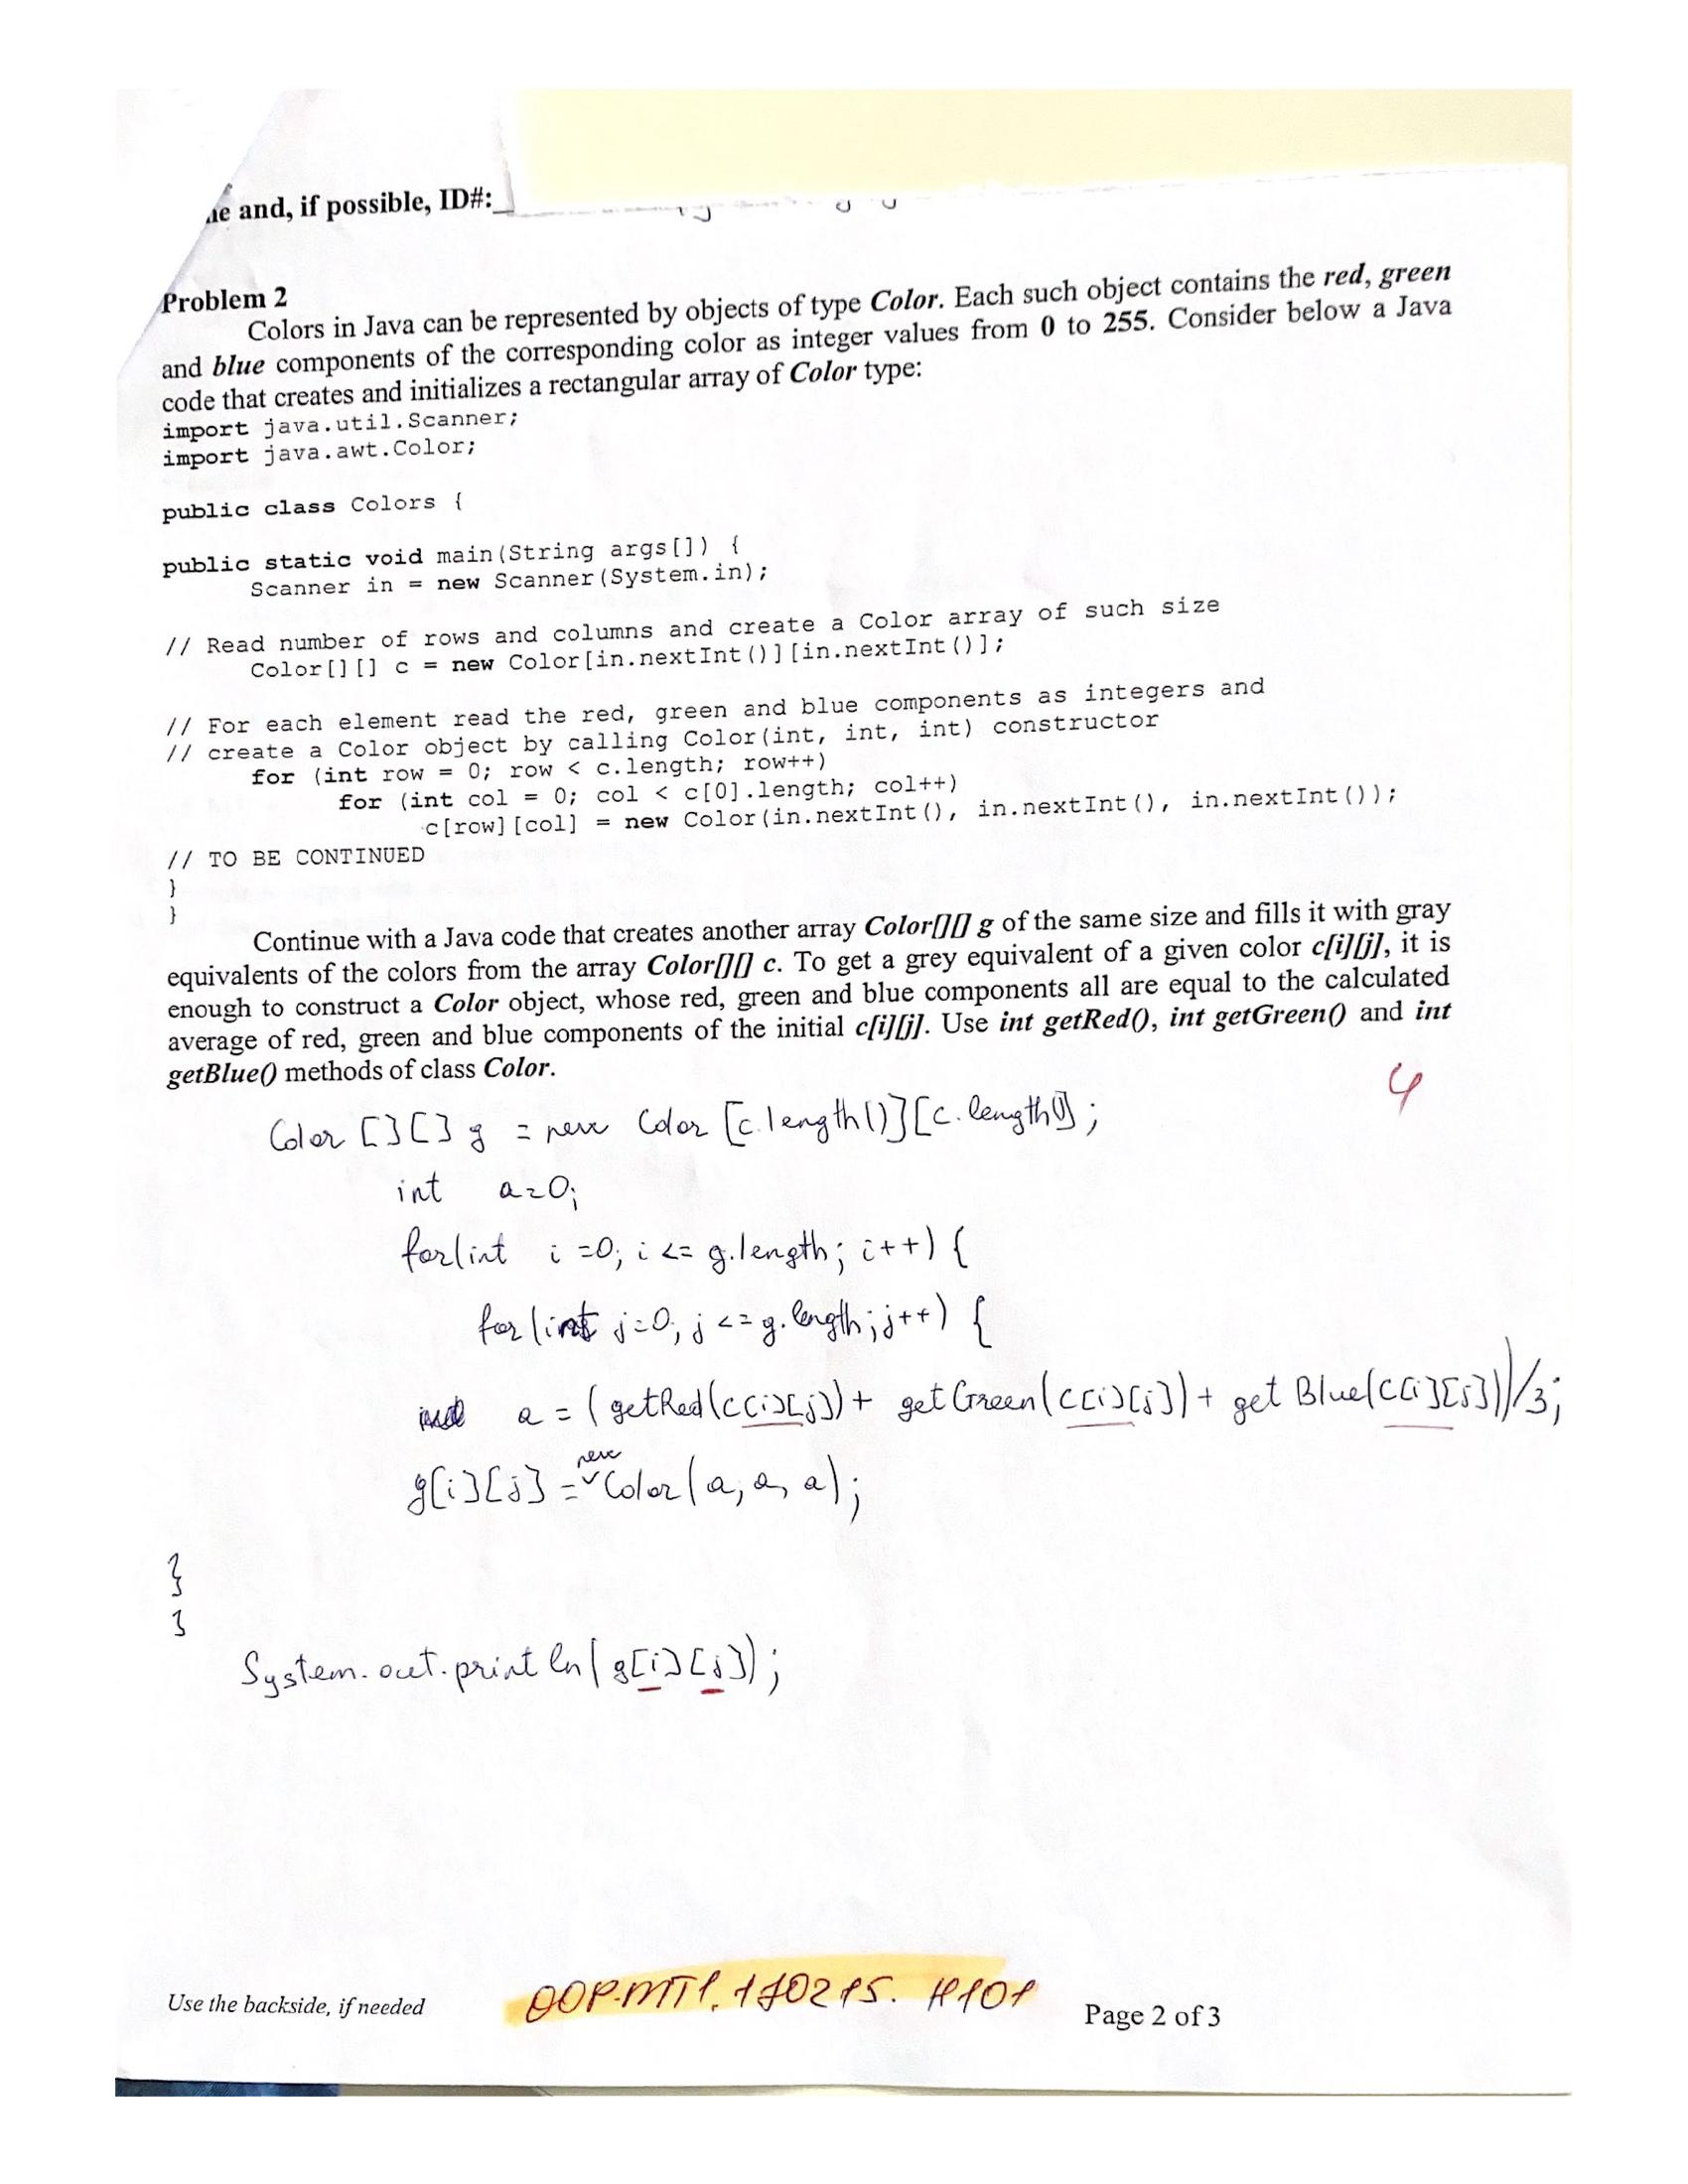 and, if possible, ID#:_
Problem 2
Colors in Java can be represented by objects of type Color. Each such object contains the red, green
and blue components of the corresponding color as integer values from 0 to 255. Consider below a Java
code that creates and initializes a rectangular array of Color type:
import java.util.Scanner;
import java.awt.Color;
public class Colors {
public static void main(String args[]) {
Scanner in = new Scanner(System.in);
// Read number of rows and columns and create a Color array of such size
Color[][] c = new Color[in.nextInt()][in.nextInt()];
// For each element read the red, green and blue components as integers and
// create a Color object by calling Color(int, int, int) constructor
for (int row = 0; row < c.length; row++)
for (int col = 0; col < c[0].length; col++)
c[row][col] = new Color(in.nextInt(), in.nextInt(), in.nextInt());
// TO BE CONTINUED
}
}
Continue with a Java code that creates another array Color[][] g of the same size and fills it with gray
equivalents of the colors from the array Color[][] c. To get a grey equivalent of a given color c[i][j], it is
enough to construct a Color object, whose red, green and blue components all are equal to the calculated
average of red, green and blue components of the initial c[i][j]. Use int getRed(), int getGreen() and int
getBlue() methods of class Color.
4
Color [][] g = new Color [c.length()][c.length()];
int a=0;
for(int i =0; i <= g.length; i++) {
for(int j=0; j <= g.length; j++) {
a = (getRed(c[i][j])+ getGreen(c[i][j])+ getBlue(c[i][j]))/3;
g[i][j] = new Color(a, a, a);
}
}
System.out.println(g[i][j]);
Use the backside, if needed
OOP.MT1.170215. H101
Page 2 of 3